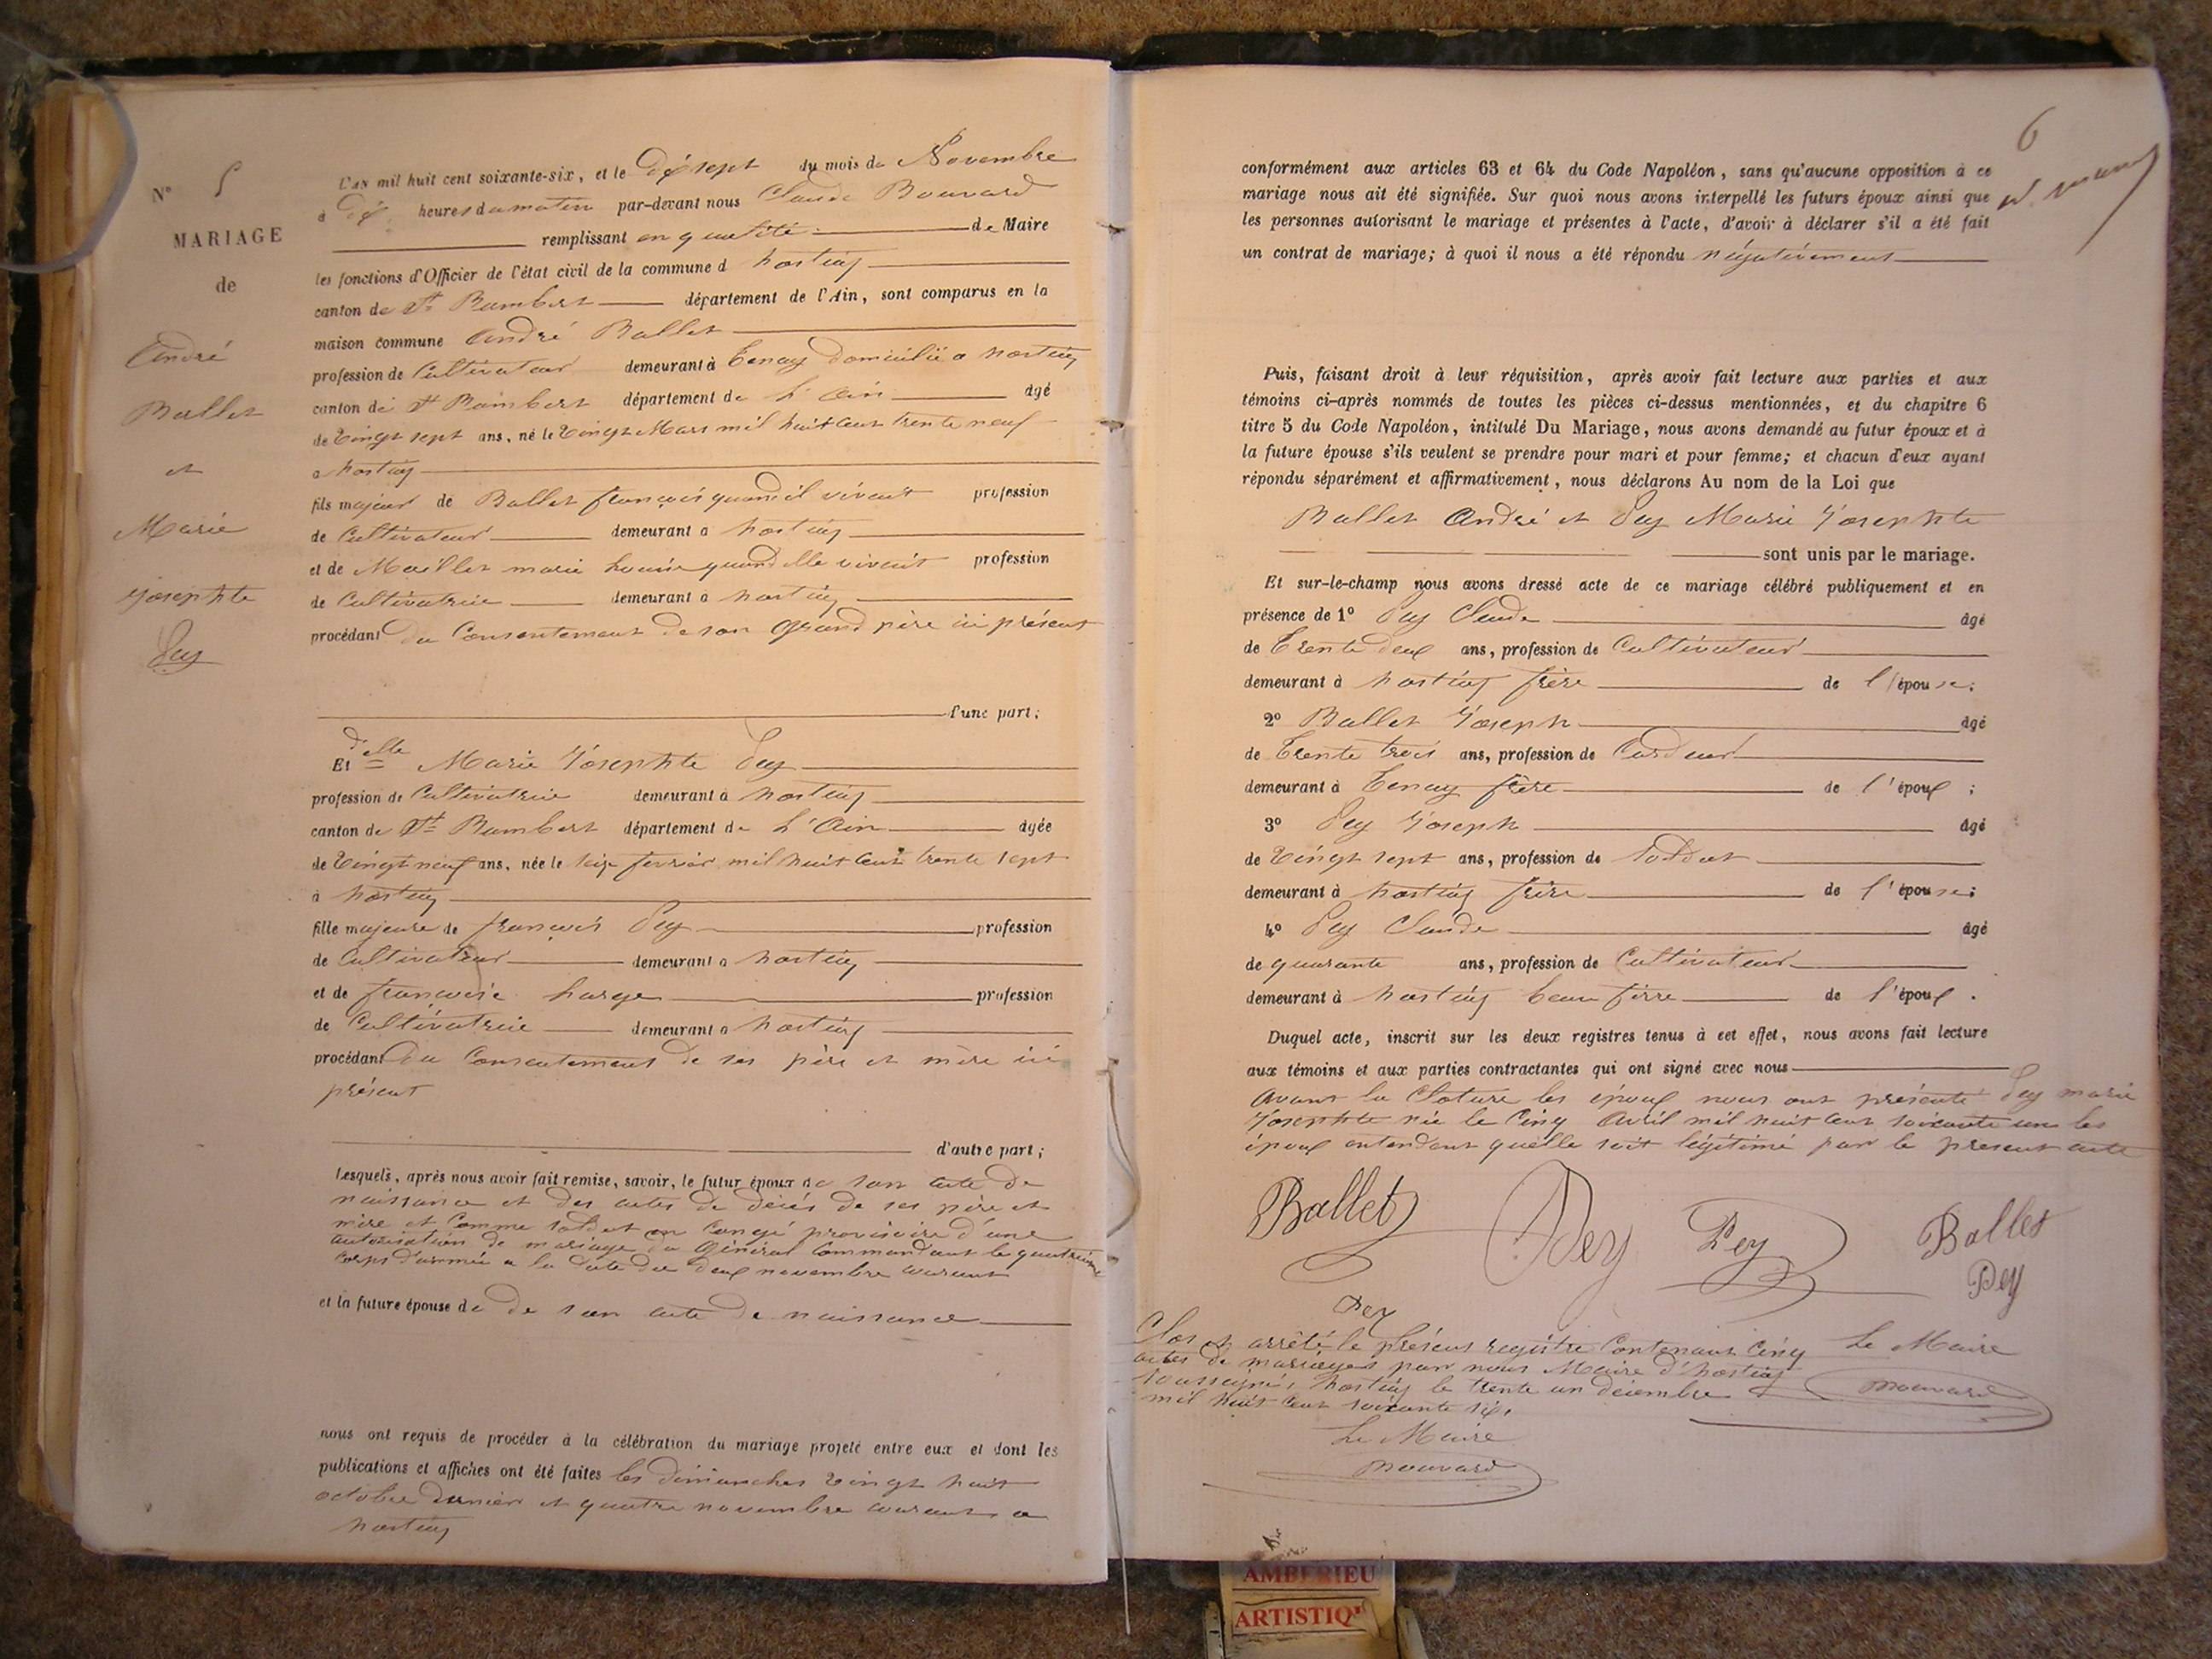 N° 5
MARIAGE
de
André
Ballet
et
Marie
Josephte
Pey
L'AN mil huit cent soixante-six, et le dix sept du mois de Novembre
à dix heures du matin par-devant nous Claude Bouvard
remplissant en qualité de Maire
les fonctions d'Officier de l'état civil de la commune d'hostiaz
canton de St Rambert département de l'Ain, sont comparus en la
maison commune André Ballet
profession de Cultivateur demeurant à Tenay domicilié a hostiaz
canton de St Rambert département de L'Ain âgé
de Vingt sept ans, né le Vingt Mars mil huit cent trente neuf
a hostiaz
fils majeur de Ballet françois quand il vivait profession
de Cultivateur demeurant a hostiaz
et de Maillet marie Louise quand elle vivait profession
de Cultivatrice demeurant a hostiaz
procédant du Consentement de son Grand père ici présent
d'une part;
Et delle Marie Josephte Pey
profession de Cultivatrice demeurant à hostiaz
canton de St Rambert département de L'Ain âgée
de Vingt neuf ans, née le seize fevrier mil huit cent trente sept
à hostiaz
fille majeure de françois Pey profession
de Cultivateur demeurant a hostiaz
et de françoise Large profession
de Cultivatrice demeurant a hostiaz
procédant du Consentement de ses père et mère ici
présent
d'autre part;
Lesquels, après nous avoir fait remise, savoir, le futur époux de son acte de
naissance et des actes de décés de ses père et
mère et Comme soldat en Congé provisoire d'une
autorisation de mariage du Général Commandant le quatrième
Corps d'armée a la date du deux novembre courant
et la future épouse de de son acte de naissance
nous ont requis de procéder à la célébration du mariage projeté entre eux et dont les
publications et affiches ont été faites les dimanches vingt huit
octobre dernier et quatre novembre courant a
hostiaz
6
conformément aux articles 63 et 64 du Code Napoléon, sans qu'aucune opposition à ce
mariage nous ait été signifiée. Sur quoi nous avons interpellé les futurs époux ainsi que
les personnes autorisant le mariage et présentes à l'acte, d'avoir à déclarer s'il a été fait
un contrat de mariage; à quoi il nous a été répondu négativement
Puis, faisant droit à leur réquisition, après avoir fait lecture aux parties et aux
témoins ci-après nommés de toutes les pièces ci-dessus mentionnées, et du chapitre 6
titre 5 du Code Napoléon, intitulé Du Mariage, nous avons demandé au futur époux et à
la future épouse s'ils veulent se prendre pour mari et pour femme; et chacun d'eux ayant
répondu séparément et affirmativement, nous déclarons Au nom de la Loi que
Ballet André et Pey Marie Josephte
sont unis par le mariage.
Et sur-le-champ nous avons dressé acte de ce mariage célébré publiquement et en
présence de 1° Pey Claude âgé
de Trente deux ans, profession de Cultivateur
demeurant à hostiaz frère de l'épouse;
2° Ballet Joseph âgé
de Trente trois ans, profession de Cardeur
demeurant à Tenay frère de l'époux;
3° Pey Joseph âgé
de Vingt sept ans, profession de Soldat
demeurant à hostiaz frère de l'épouse;
4° Pey Claude âgé
de quarante ans, profession de Cultivateur
demeurant à hostiaz beau frère de l'époux.
Duquel acte, inscrit sur les deux registres tenus à cet effet, nous avons fait lecture
aux témoins et aux parties contractantes qui ont signé avec nous
Avant la Cloture les époux nous ont présenté Pey marie
Josephte née le Cinq Avril mil huit cent soixante un les
époux entendant quelle soit légitimé par le présent acte
Ballet Pey Pey Ballet
Pey
Pey
Clos et arrêté le présent registre Contenant Cinq
actes de mariages par nous Maire d'hostiaz
soussigné, hostiaz le trente un décembre
mil huit cent soixante six.
Le Maire
Bouvard
Le Maire
Bouvard
AMBERIEU
ARTISTIQ